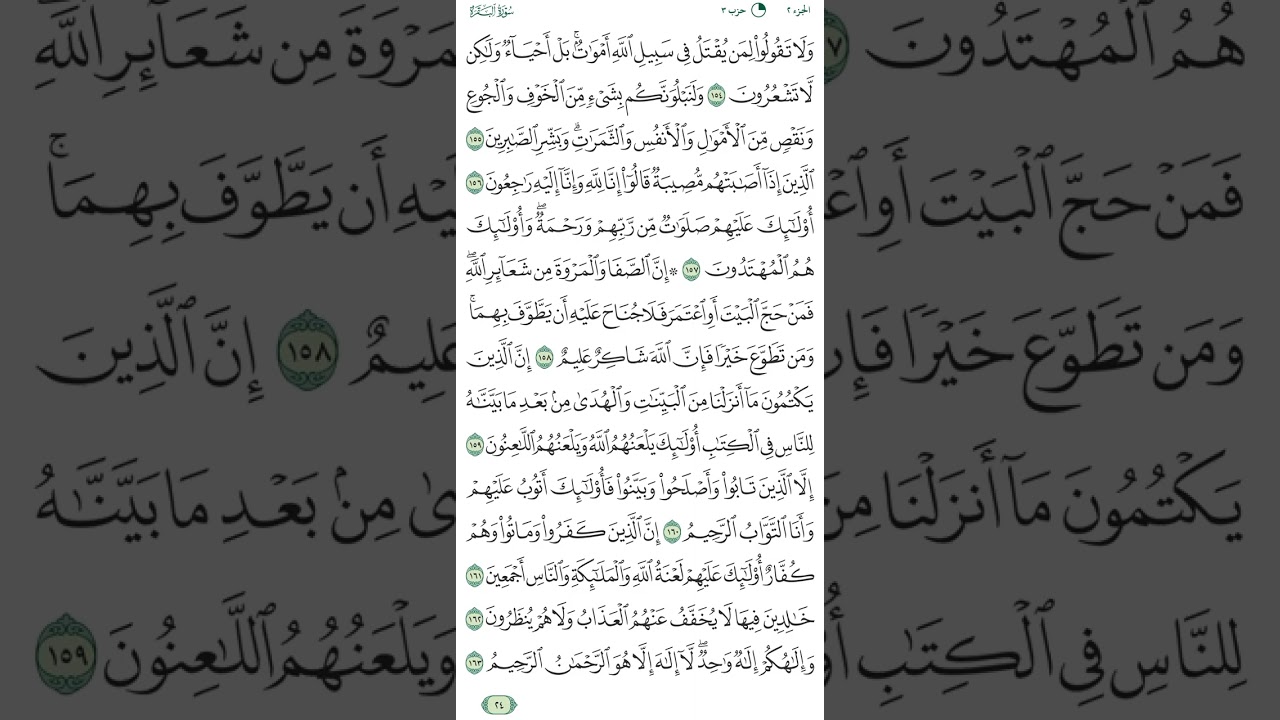 الجزء ٢ حزب ٣ سُورَةُ البَقَرَة
وَلَا تَقُولُوا۟ لِمَن يُقْتَلُ فِى سَبِيلِ ٱللَّهِ أَمْوَٰتٌۢ ۚ بَلْ أَحْيَآءٌ وَلَٰكِن
لَّا تَشْعُرُونَ ١٥٤ وَلَنَبْلُوَنَّكُم بِشَىْءٍ مِّنَ ٱلْخَوْفِ وَٱلْجُوعِ
وَنَقْصٍ مِّنَ ٱلْأَمْوَٰلِ وَٱلْأَنفُسِ وَٱلثَّمَرَٰتِ ۗ وَبَشِّرِ ٱلصَّٰبِرِينَ ١٥٥
ٱلَّذِينَ إِذَآ أَصَٰبَتْهُم مُّصِيبَةٌ قَالُوٓا۟ إِنَّا لِلَّهِ وَإِنَّآ إِلَيْهِ رَٰجِعُونَ ١٥٦
أُو۟لَٰٓئِكَ عَلَيْهِمْ صَلَوَٰتٌ مِّن رَّبِّهِمْ وَرَحْمَةٌ ۖ وَأُو۟لَٰٓئِكَ
هُمُ ٱلْمُهْتَدُونَ ١٥٧ ۞ إِنَّ ٱلصَّفَا وَٱلْمَرْوَةَ مِن شَعَآئِرِ ٱللَّهِ ۖ
فَمَنْ حَجَّ ٱلْبَيْتَ أَوِ ٱعْتَمَرَ فَلَا جُنَاحَ عَلَيْهِ أَن يَطَّوَّفَ بِهِمَا ۚ
وَمَن تَطَوَّعَ خَيْرًا فَإِنَّ ٱللَّهَ شَاكِرٌ عَلِيمٌ ١٥٨ إِنَّ ٱلَّذِينَ
يَكْتُمُونَ مَآ أَنزَلْنَا مِنَ ٱلْبَيِّنَٰتِ وَٱلْهُدَىٰ مِنۢ بَعْدِ مَا بَيَّنَّٰهُ
لِلنَّاسِ فِى ٱلْكِتَٰبِ أُو۟لَٰٓئِكَ يَلْعَنُهُمُ ٱللَّهُ وَيَلْعَنُهُمُ ٱللَّٰعِنُونَ ١٥٩
إِلَّا ٱلَّذِينَ تَابُوا۟ وَأَصْلَحُوا۟ وَبَيَّنُوا۟ فَأُو۟لَٰٓئِكَ أَتُوبُ عَلَيْهِمْ
وَأَنَا ٱلتَّوَّابُ ٱلرَّحِيمُ ١٦٠ إِنَّ ٱلَّذِينَ كَفَرُوا۟ وَمَاتُوا۟ وَهُمْ
كُفَّارٌ أُو۟لَٰٓئِكَ عَلَيْهِمْ لَعْنَةُ ٱللَّهِ وَٱلْمَلَٰٓئِكَةِ وَٱلنَّاسِ أَجْمَعِينَ ١٦١
خَٰلِدِينَ فِيهَا لَا يُخَفَّفُ عَنْهُمُ ٱلْعَذَابُ وَلَا هُمْ يُنظَرُونَ ١٦٢
وَإِلَٰهُكُمْ إِلَٰهٌ وَٰحِدٌ ۖ لَّآ إِلَٰهَ إِلَّا هُوَ ٱلرَّحْمَٰنُ ٱلرَّحِيمُ ١٦٣
٢٤